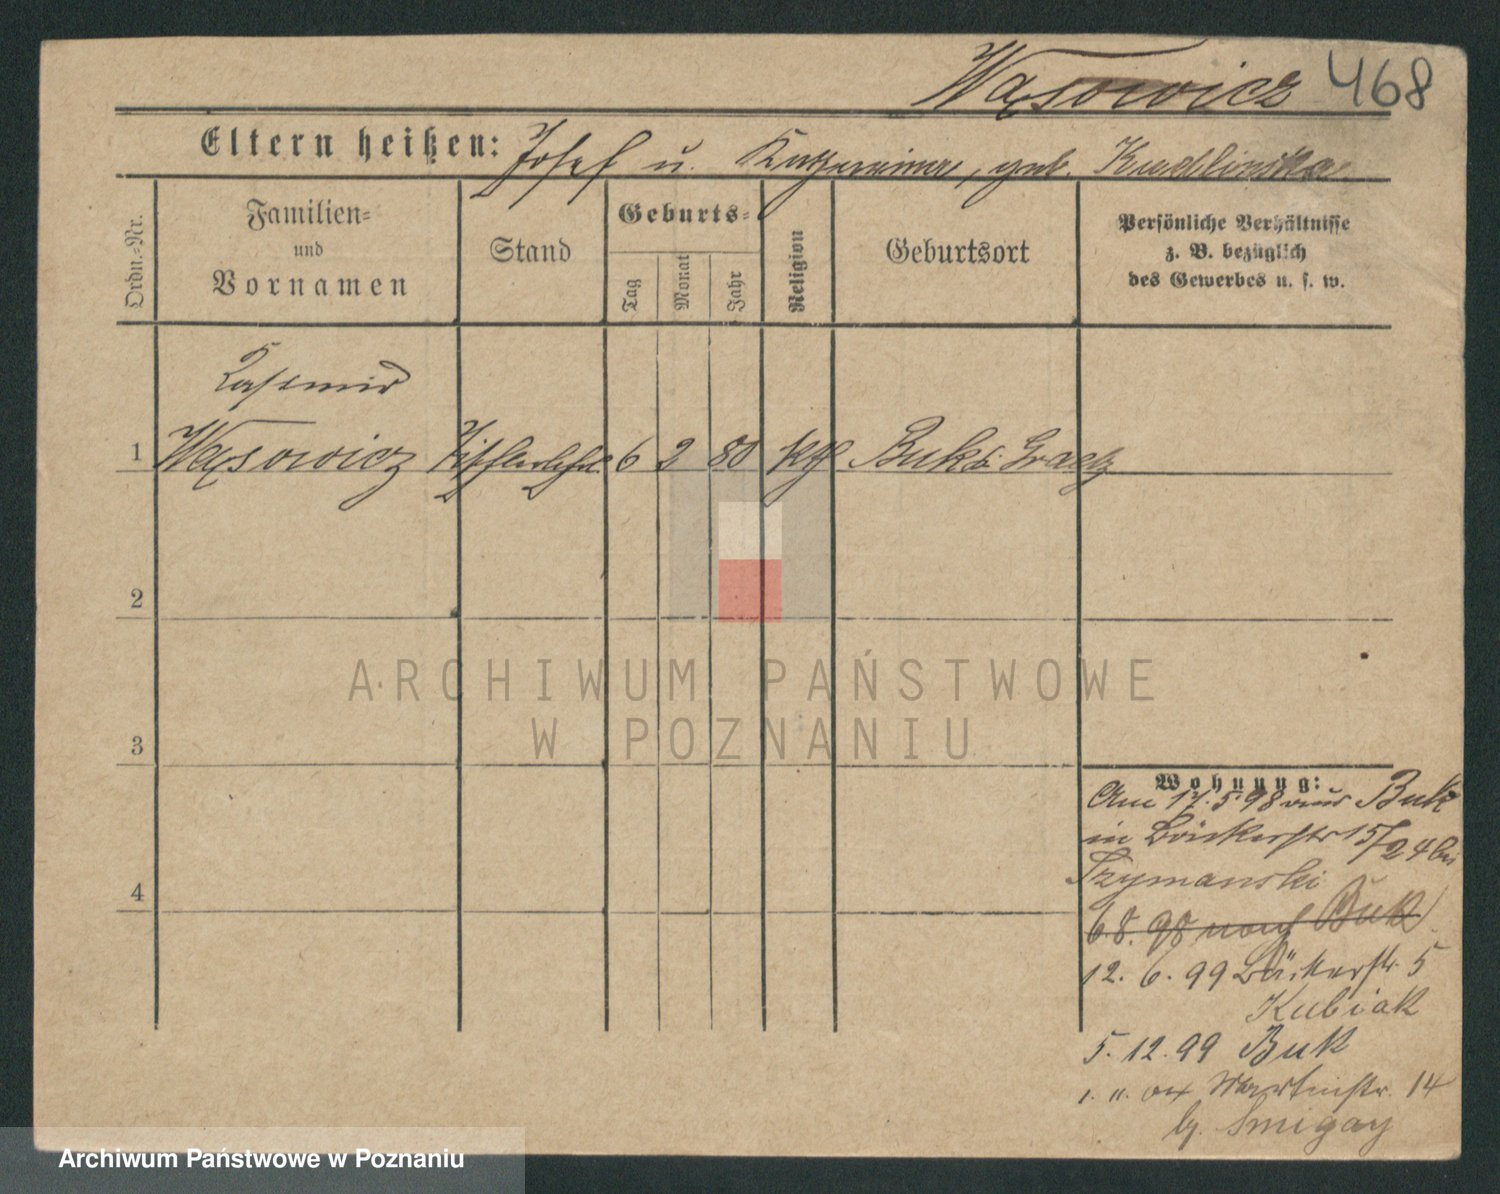 Wąsowicz 468
Eltern heißen: Josef u. Katharina, geb. Kudlinska
Ordn.-Nr.
Familien-
und
Vornamen
Stand
Geburts-
Tag
Monat
Jahr
Religion
Geburtsort
Persönliche Verhältnisse
z. B. bezüglich
des Gewerbes u. s. w.
Kasimir
1 Wąsowicz 6 2 80 kth Buk Graetz
2
3
4
ARCHIWUM PAŃSTWOWE
W POZNANIU
Wohnung:
Am 17.5.98 aus Buk
in Bäckerstr 15/24 bei
Szymanski
6.8.98 nach Buk
12.6.99 Bäckerstr. 5
Kubiak
5.12.99 Buk
Martinstr. 14
Smigay
Archiwum Państwowe w Poznaniu